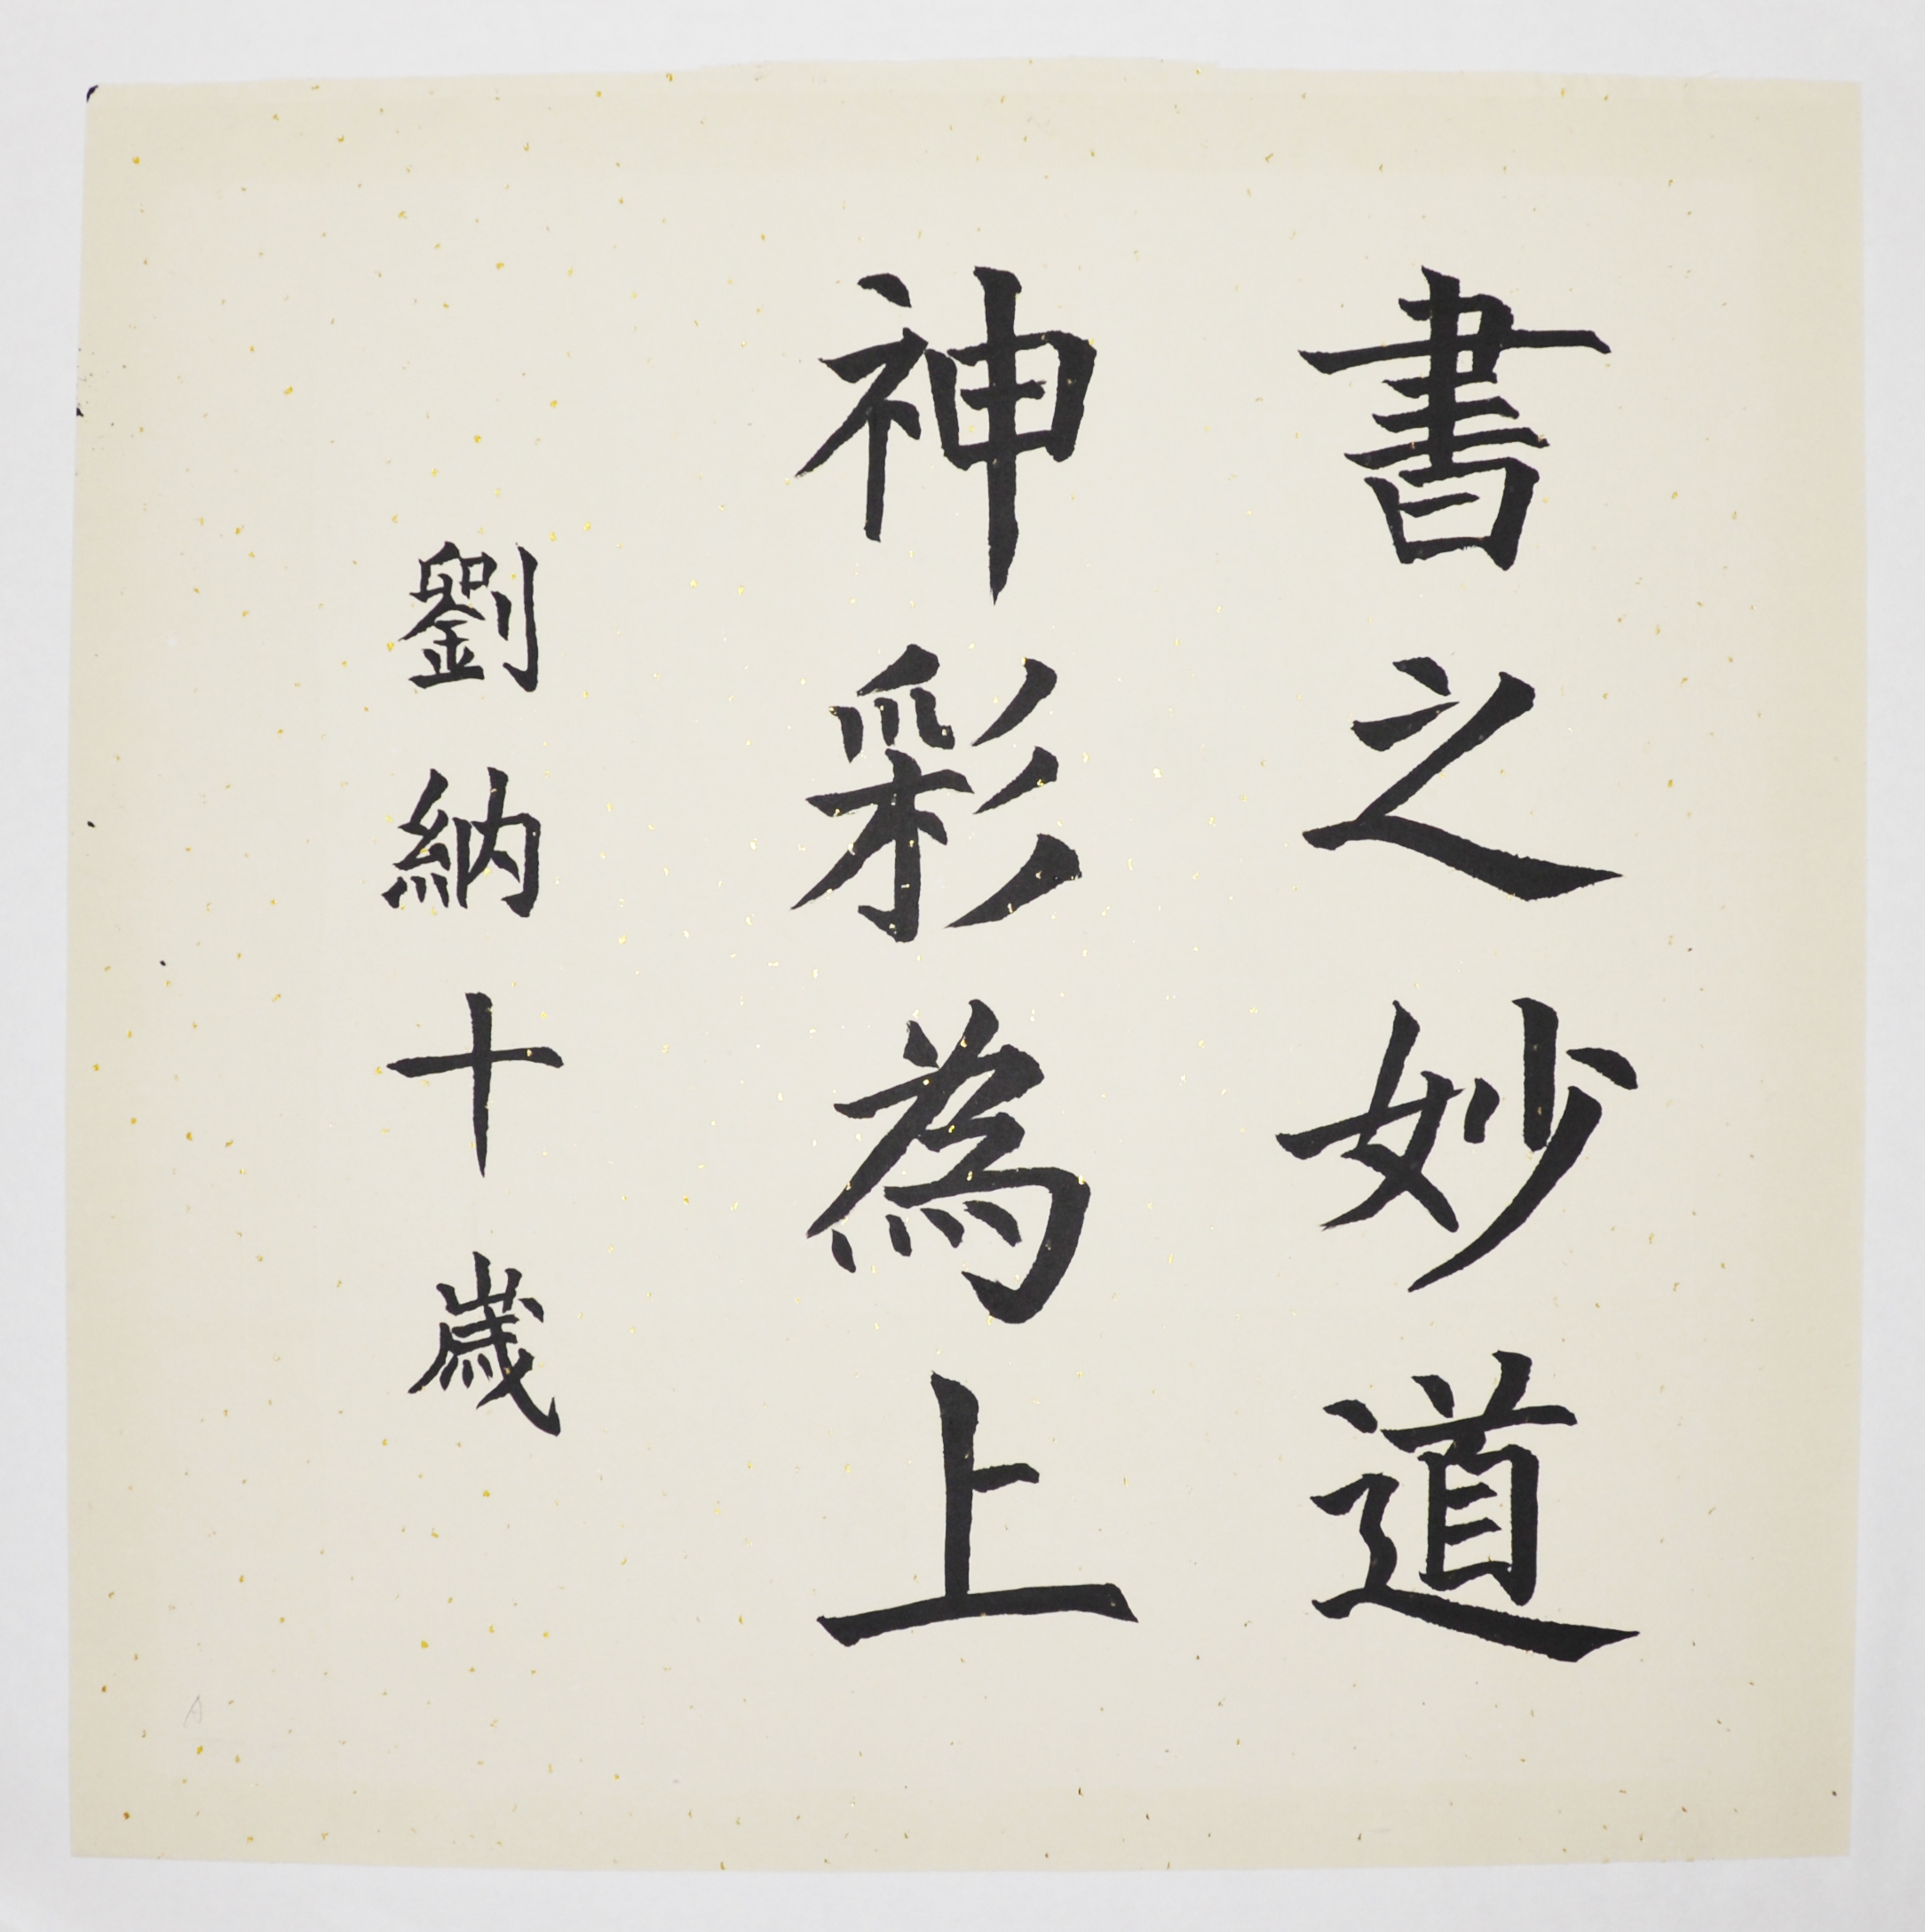 書之妙道
神彩為上
劉納十歳
A